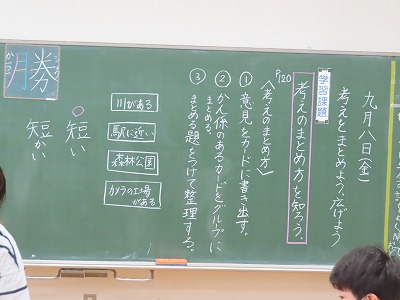 九月八日(金)
考えをまとめよう、広げよう
学習課題
P120
考えのまとめ方を知ろう。
〈考えのまとめ方〉
① 意見をカードに書き出す。
② かん係のあるカードをグループに
まとめる。
③ まとめる題をつけて整理する。
川がある
駅に近い
森林公園
カメラの工場
がある
○短い
短かい
しょう
勝
かつ